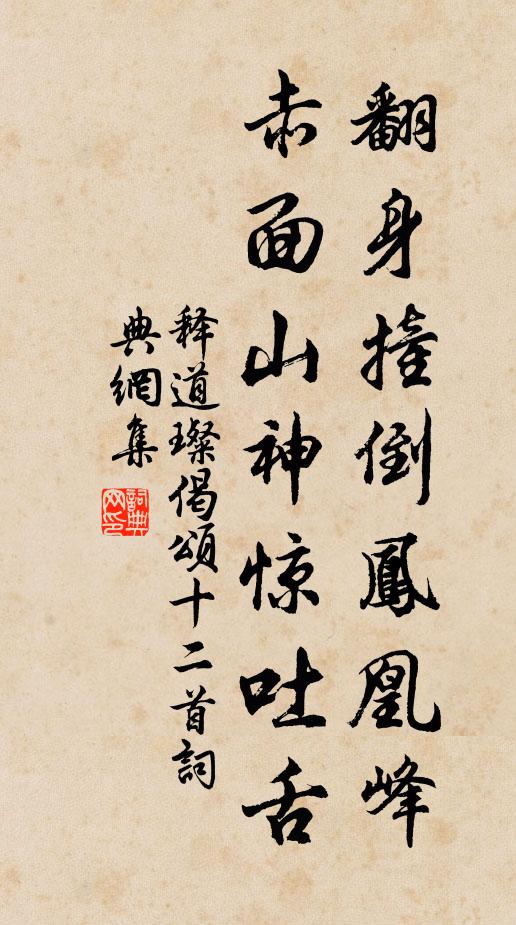 翻身撞倒鳳凰峰
赤面山神惊吐舌
释道璨偈頌十二首詞
典網集
詞典
网印